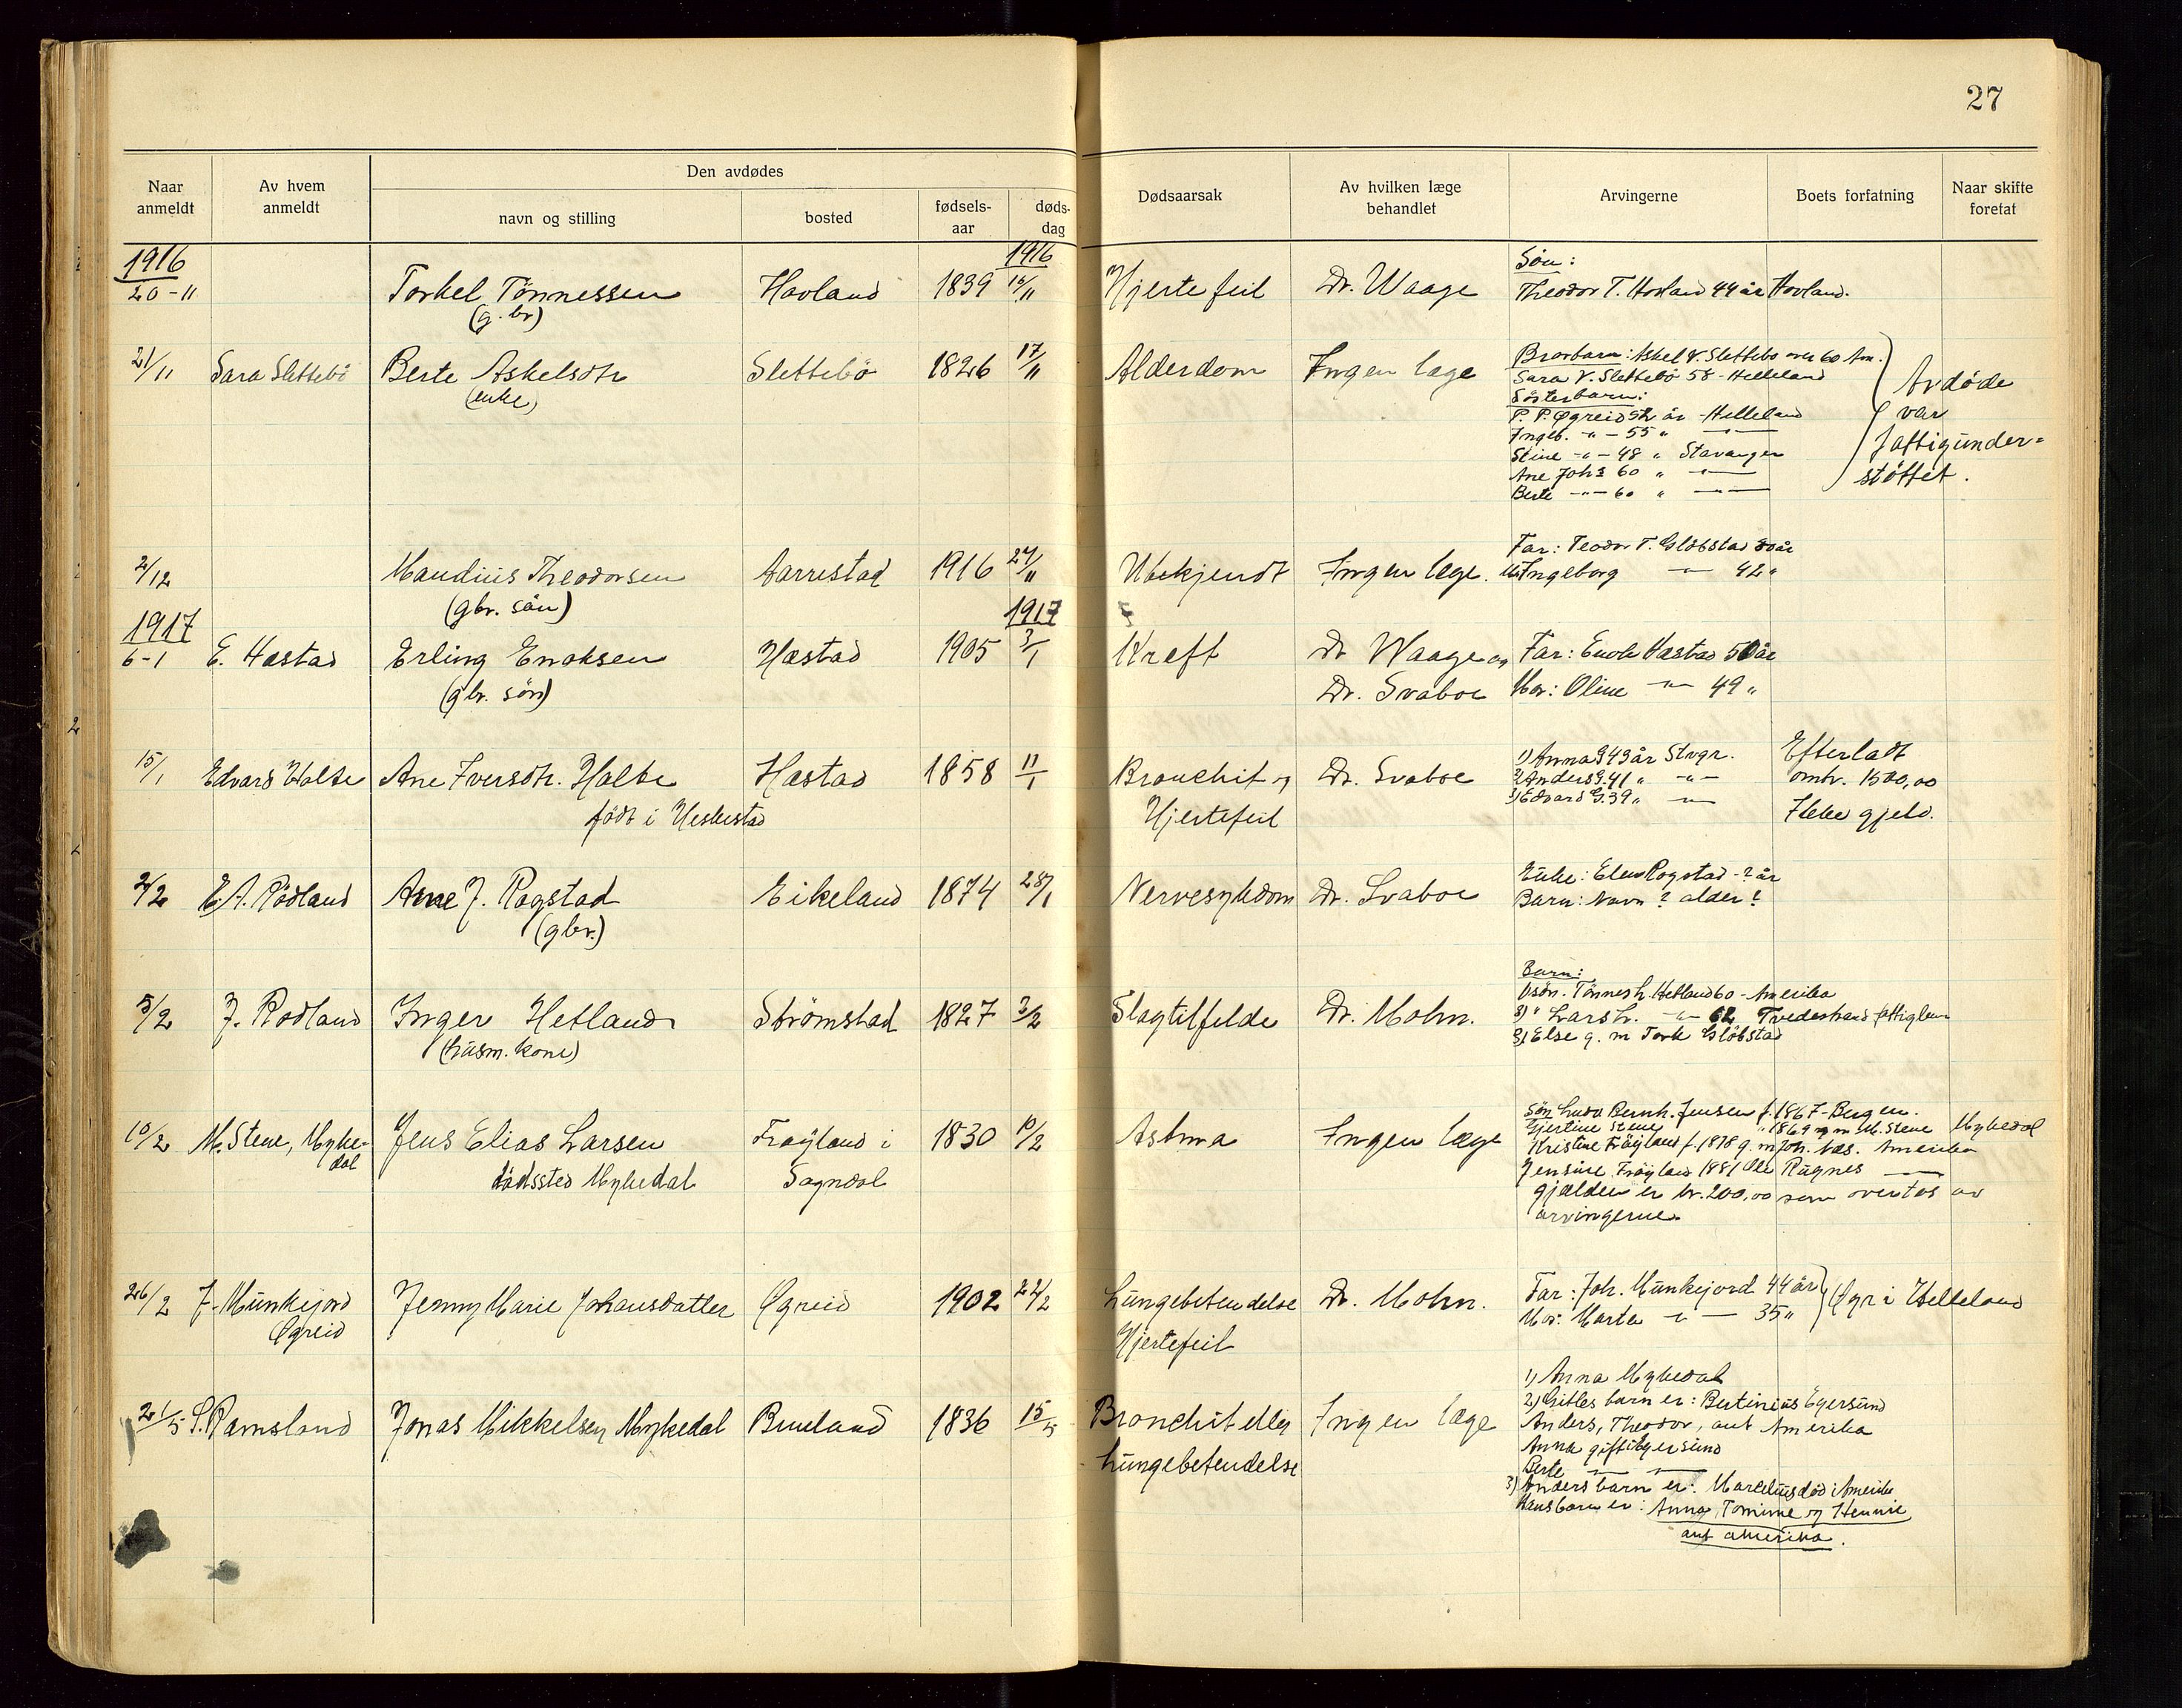 27
Naar anmeldt
Av hvem anmeldt
Den avdødes
navn og stilling
bosted
fødsels-aar
døds-dag
Dødsaarsak
Av hvilken læge behandlet
Arvingerne
Boets forfatning
Naar skifte foretat
1916
20-11 Torkel Tönnessen Havland 1839 1916 16/11 Hjertefeil Dr. Waage
(g. br)
Sön:
Theodor T. Hovland 44 år Hovland.
21/11 Sara Slettebö Berte Askelsdtr Slettebö 1826 17/11 Alderdom Ingen læge
(enke)
Brorbarn: Askel V. Slettebo over 60 Am.
Sara V. Slettebö 58 - Helleland
Søsterbarn:
P. P. Øgreid år - Helleland
Ingeb. -"- 55 " -"-
Stine -"- 48 " Stavanger
Ane Johs 60 " -"-
Berte -"- 60 " -"-
Avdöde
var
fattigunder=
støttet.
2/12 Mandius Theodorsen Aarrestad 1916 24/11 Ubekjendt Ingen læge.
(gbr. sön)
Far: Teodor T. Glöbstad år
M. Ingeborg -"- 42 "
1917
6-1 E. Hæstad Erling Enoksen Hæstad 1905 1917 3/1 Kræft Dr Waage og
(gbr. sön) Dr. Svaboe
Far: Enok Hæstad 50 år
Mor: Oline -"- 49 "
15/1 Edvard Halbe Ane Iversdtr. Halbe Hæstad 1858 11/1 Bronchit og Dr. Svaboe
født i Heskestad Hjertefeil
1) Anna G 43 år Stvgr.
2) Anders G. 41 " -"-
3) Edvard G. 39 " -"-
Efterladt
omtr. 1500,00
Ikke gjeld.
2/2 E. A. Rödland Arne J. Rogstad Eikeland 1874 28/1 Nervesykdom Dr. Svaboe
(gbr.)
Enke: Elen Rogstad - ? år
Barn: Navn ? alder ?
5/2 J. Rodland Inger Hetland Strömstad 1827 3/2 Slagtilfelde Dr. Mohn.
(husm. kone)
Barn:
1) sön. Tönnes L. Hetland 60 - Amerika
2) " Lars L. -"- 62 Tvedestrand fattiglem
3) Else g. m Tork Glöbstad
10/2 M. Stene, Mykedal Jens Elias Larsen Fröyland i 1830 10/2 Astma Ingen læge
dödssted Mykedal Sogndal
Sön Ludv Bernh. Jensen f. 1867 - Bergen.
Gjertine Stene " 1869 g m M. Stene Mykedal
Kristine Fröyland f. 1878 g. m Joh. Næs. Amerika
Jensine Fröyland 1881 Ole Rugnes -"-
gjælden er kr. 200,00 som overtas av
arvingerne.
26/2 J. Munkejord Jenny Marie Johansdatter Øgreid 1902 22/2 Lungebetendelse Dr. Mohn.
Øgreid Hjertefeil
Far: Joh. Munkejord 44 år
Mor: Marta -"- 35 "
Øgr i Helleland
21/5 S. Ramsland Jonas Mikkelsen Mykedal Brueland 1836 15/5 Bronchit eller Ingen læge
Lungebetendelse
1) Anna Mykedal
2) Gitles barn er: Bertinius Egersund
Anders, Theodor, ant Amerika
Anna gift i Egersund
Berte -"- -"-
3) Anders barn er: Marselius död i Amerika
Hans barn er: Anna, Tomine og Hennie
ant amerika.